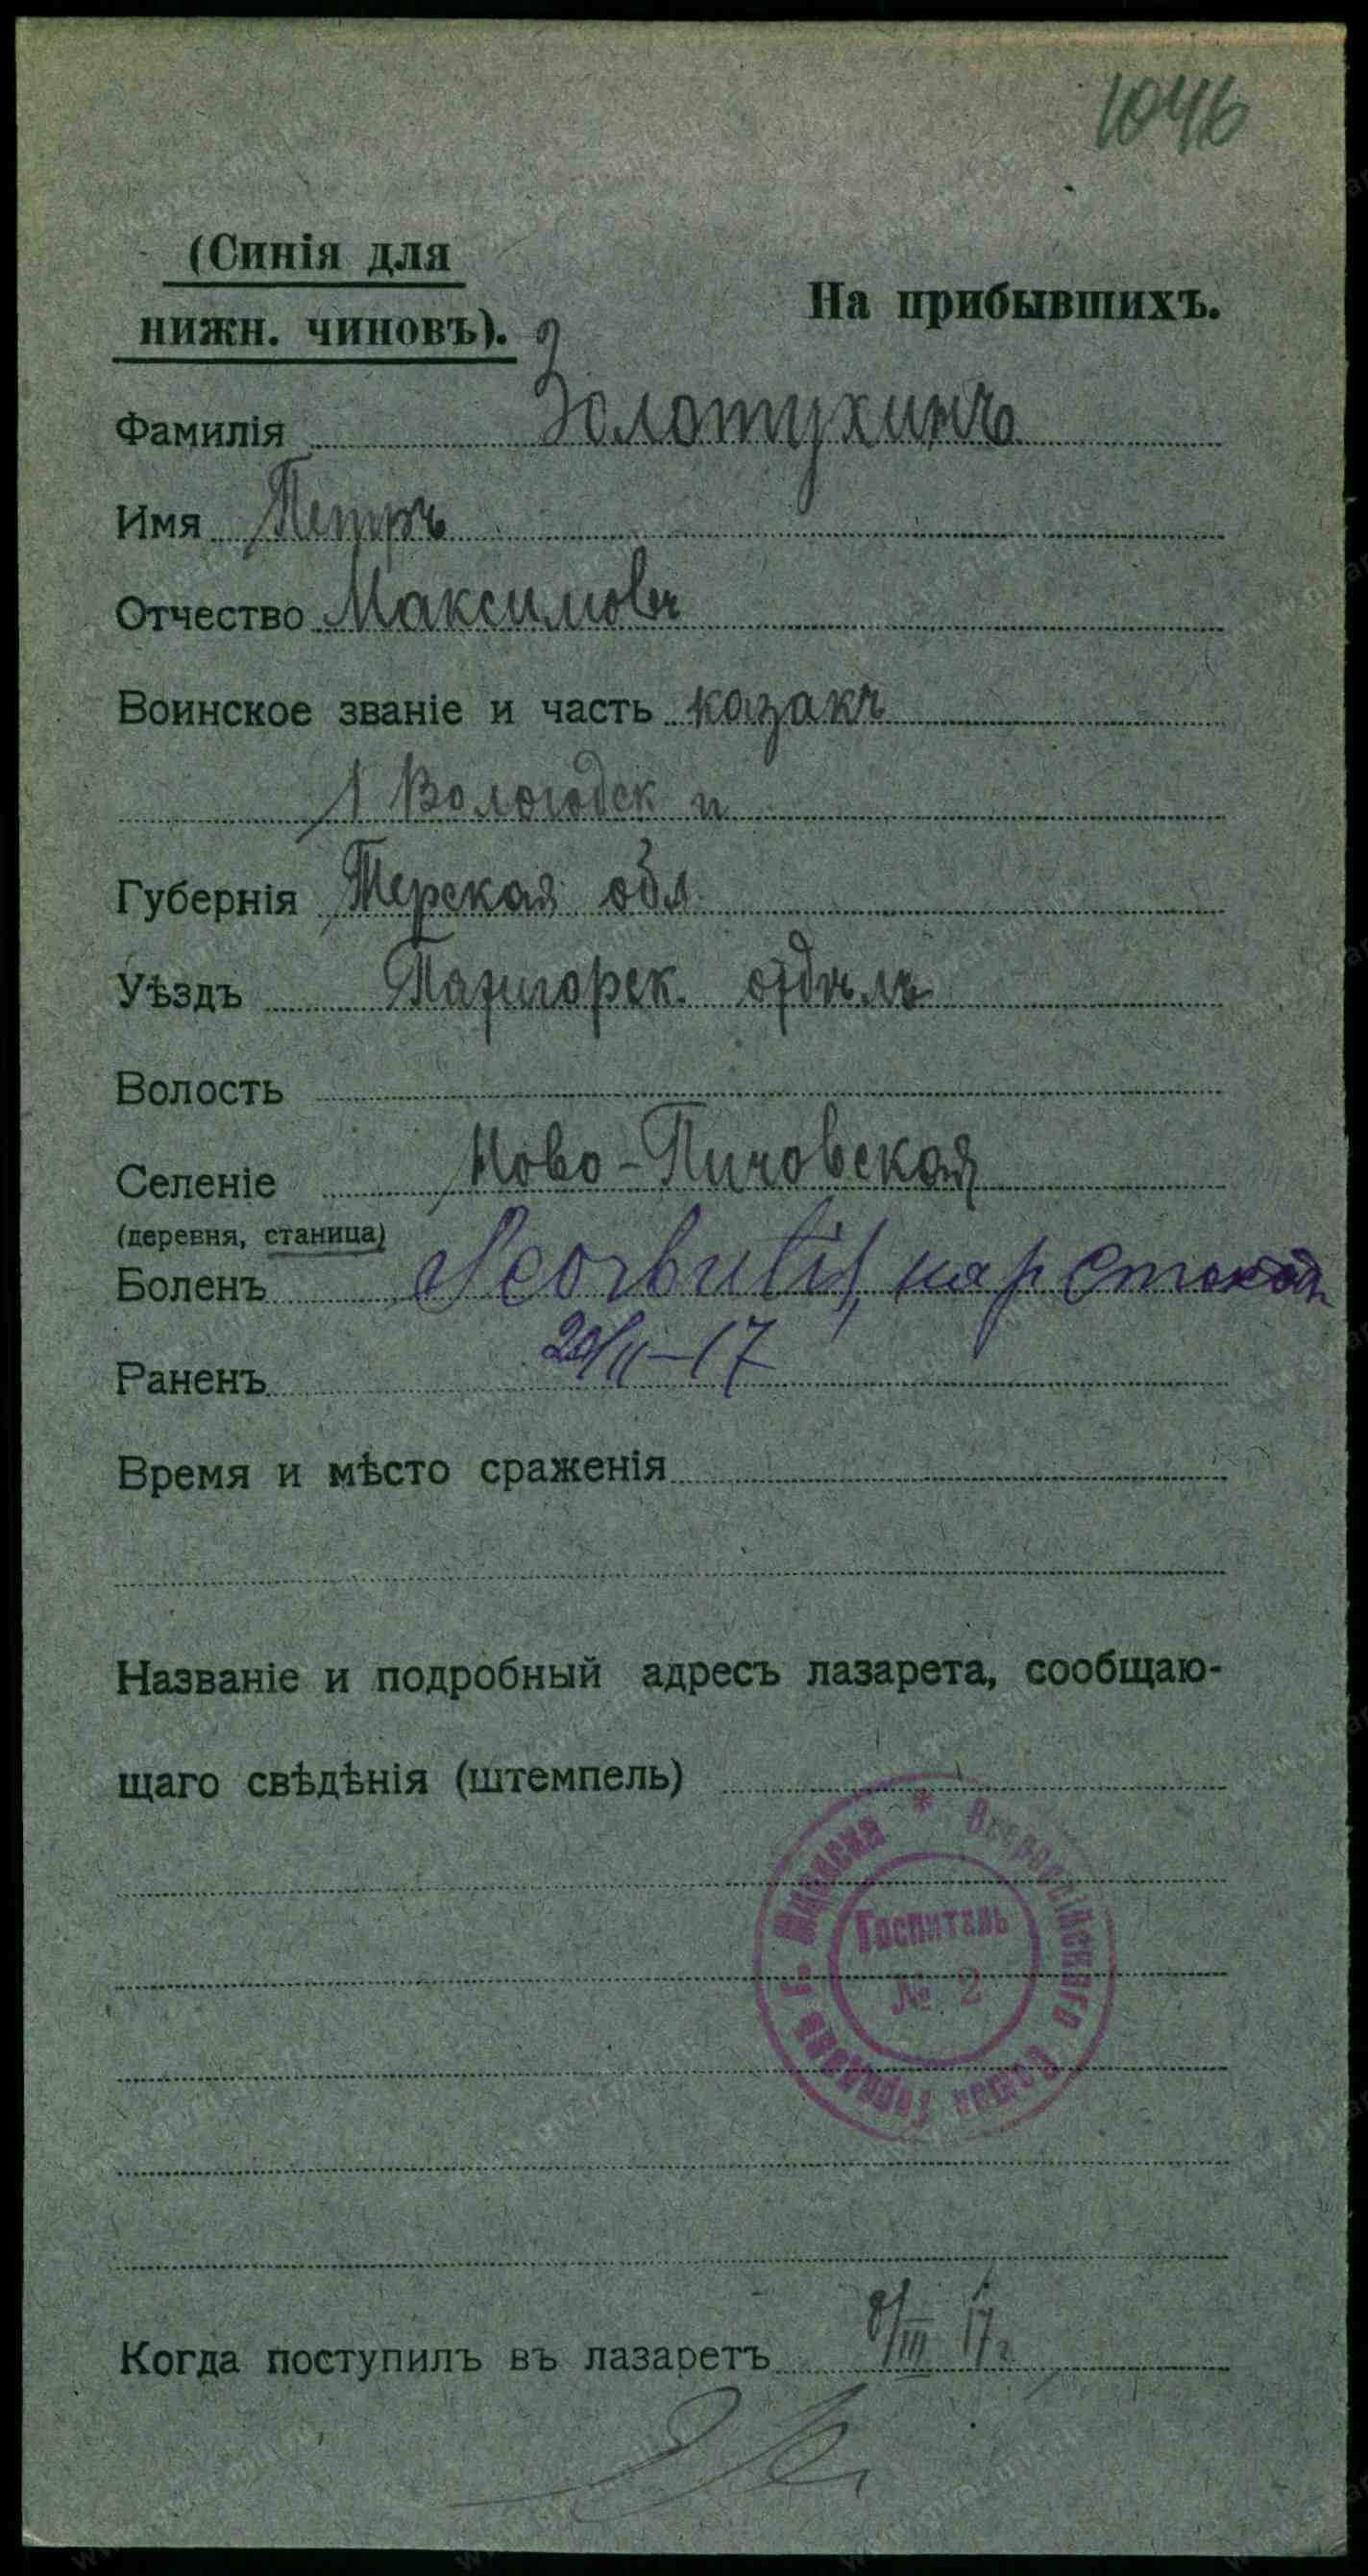 1046
(Синія для
нижн. чиновъ).
На прибывшихъ.
Фамилія Золотухинъ
Имя Петръ
Отчество Максимовъ
Воинское званіе и часть казакъ
1 Вологодск п
Губернія Терская обл.
Уѣздъ Пятигорск. отдѣлъ
Волость
Селеніе Ново-Пиловская
(деревня, станица)
Боленъ Scorbutis,
20/II-17
Раненъ
Время и мѣсто сраженія
Названіе и подробный адресъ лазарета, сообщаю-
щаго свѣдѣнія (штемпель)
* Всероссійскаго Союза Городовъ г. Минска
Госпиталь
№ 2
Когда поступилъ въ лазаретъ 8/III 17 г